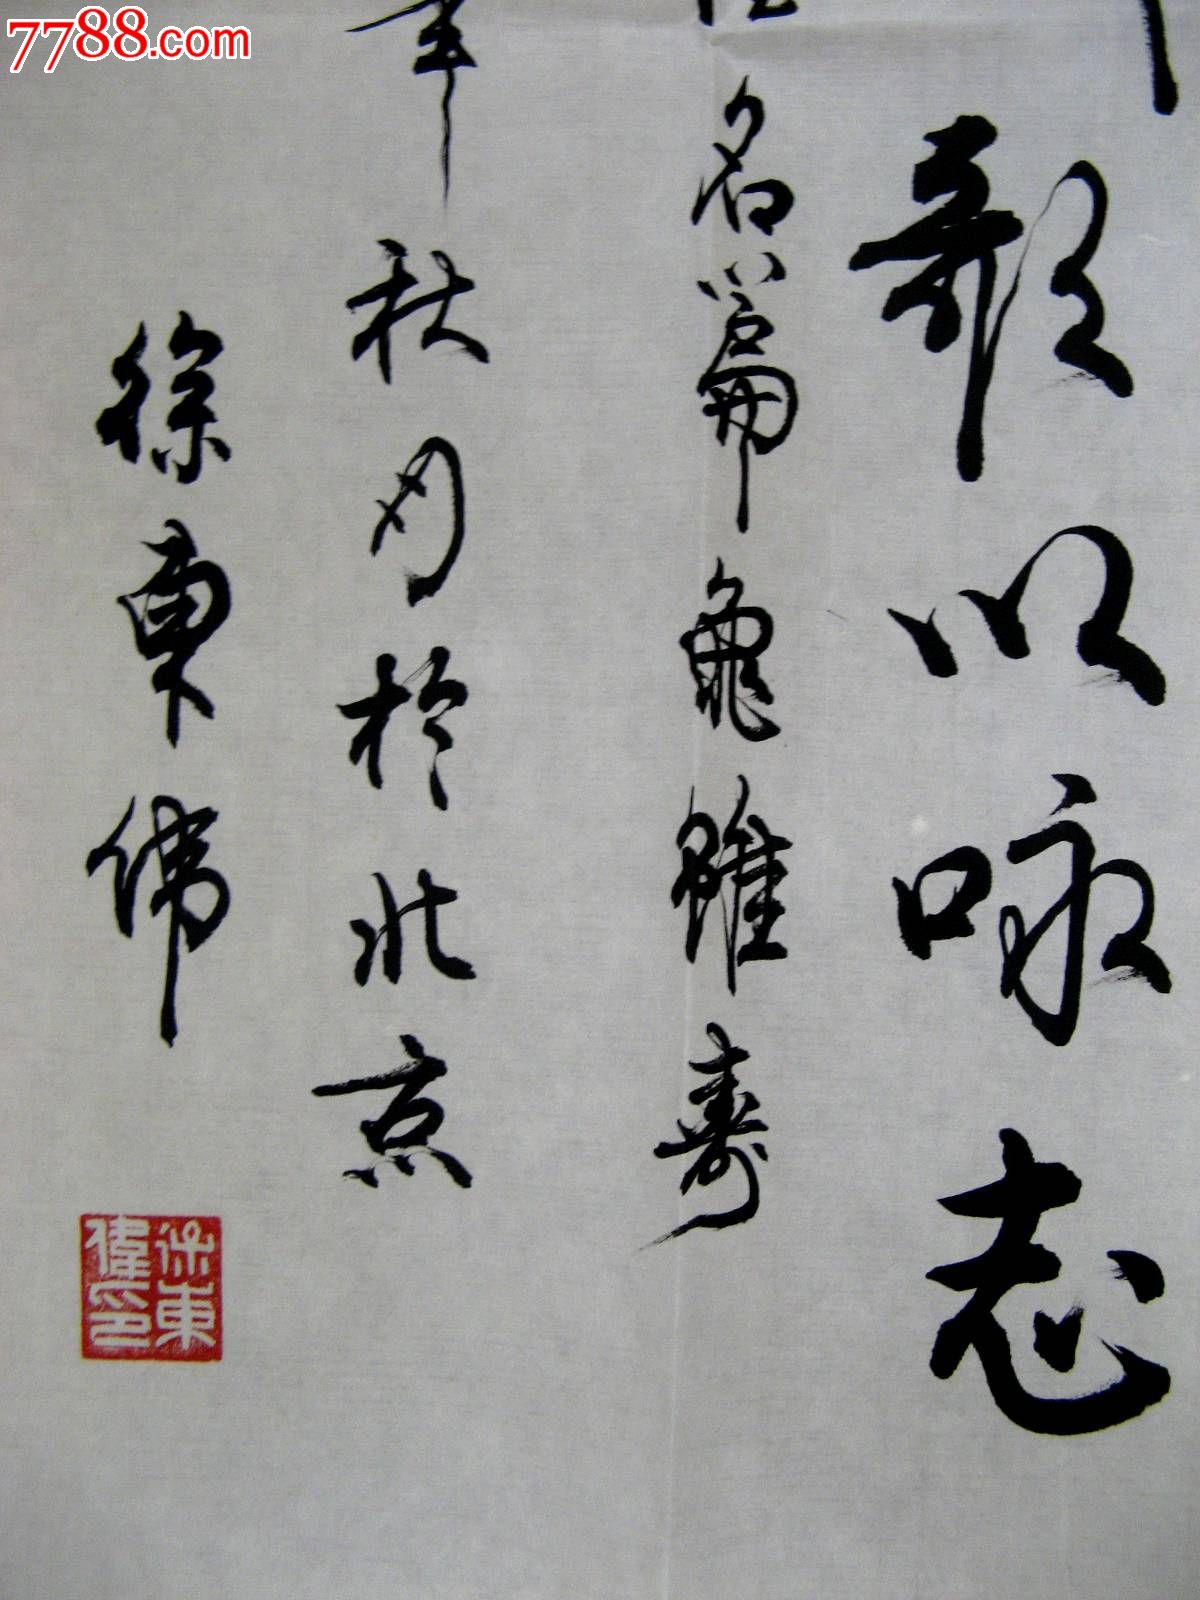 7788.com
歌以咏志
名篇龟虽寿
年秋月於北京
徐東伟
徐東
偉印